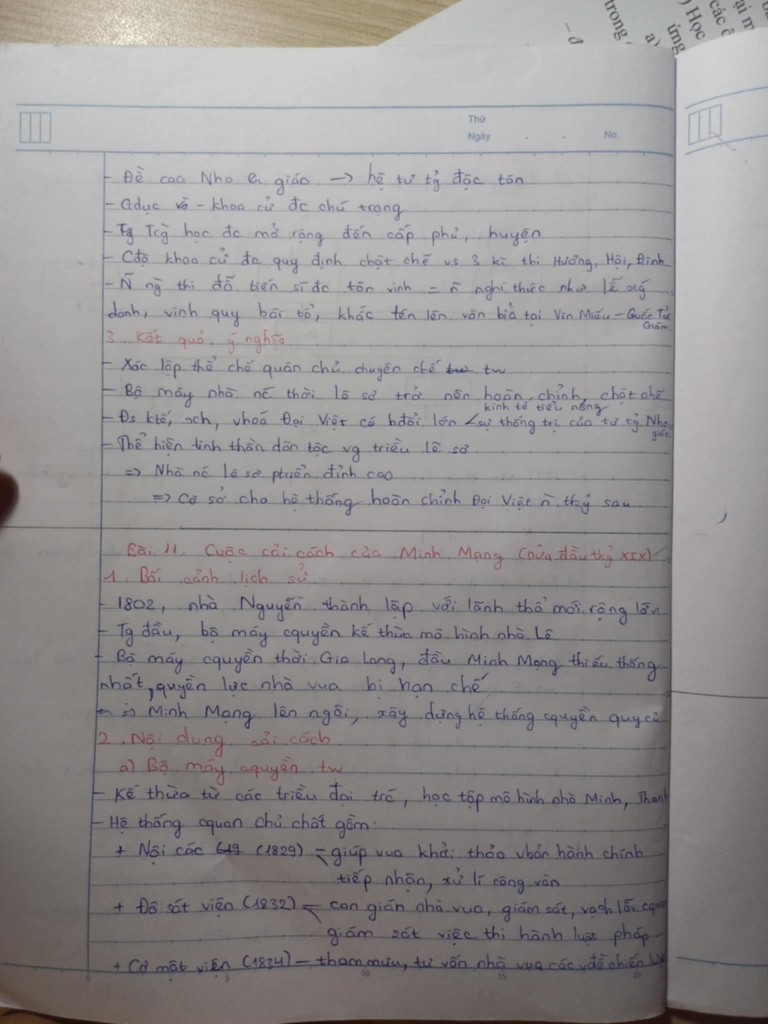 trong
a)
ứng
) Học
các
Thứ
Ngày . . No.
- Đề cao Nho giáo → hệ tư tg độc tôn
- Gdục - khoa cử đc chú trọng
- Trg học đc mở rộng đến cấp phủ, huyện
- Cđộ khoa cử đc quy định chặt chẽ vs 3 kì thi Hương, Hội, Đình
- Ñ ng thi đỗ tiến sĩ đc tôn vinh = ñ nghi thức như lễ xg
danh, vinh quy bái tổ, khắc tên lên văn bia tại Văn Miếu - Quốc Tử
Giám
3. Kết quả, ý nghĩa
- Xác lập thể chế quân chủ chuyên chế tw
- Bộ máy nhà nc thời lê sơ trở nên hoàn chỉnh, chặt chẽ
kinh tế tiểu nông
- Đs ktế, xh, vhoá Đại Việt có bđổi lớn < sự thống trị của tư tg Nho
giáo
- Thể hiện tinh thần dân tộc vg triều lê sơ
=> Nhà nc lê sơ ptriển đỉnh cao
=> Cơ sở cho hệ thống hoàn chỉnh Đại Việt ñ thkỷ sau
Bài 11. Cuộc cải cách của Minh Mạng (nửa đầu thkỷ XIX)
1. Bối cảnh lịch sử
- 1802, nhà Nguyễn thành lập với lãnh thổ mới rộng lớn
- Tg đầu, bộ máy cquyền kế thừa mô hình nhà Lê
- Bộ máy cquyền thời Gia Long, đầu Minh Mạng thiếu thống
nhất, quyền lực nhà vua bị hạn chế
=> Minh Mạng lên ngôi, xây dựng hệ thống cquyền quy củ
2. Nội dung cải cách
a) Bộ máy cquyền tw
- Kế thừa từ các triều đại trc, học tập mô hình nhà Minh, Thanh
- Hệ thống cquan chủ chốt gồm:
+ Nội các (1829) - giúp vua khởi thảo vbản hành chính
tiếp nhận, xử lí công văn
+ Đô sát viện (1832) - can gián nhà vua, giám sát, vạch lỗi
giám sát việc thi hành luật pháp
+ Cơ mật viện (1834) - tham mưu, tư vấn nhà vua các vđề chiến